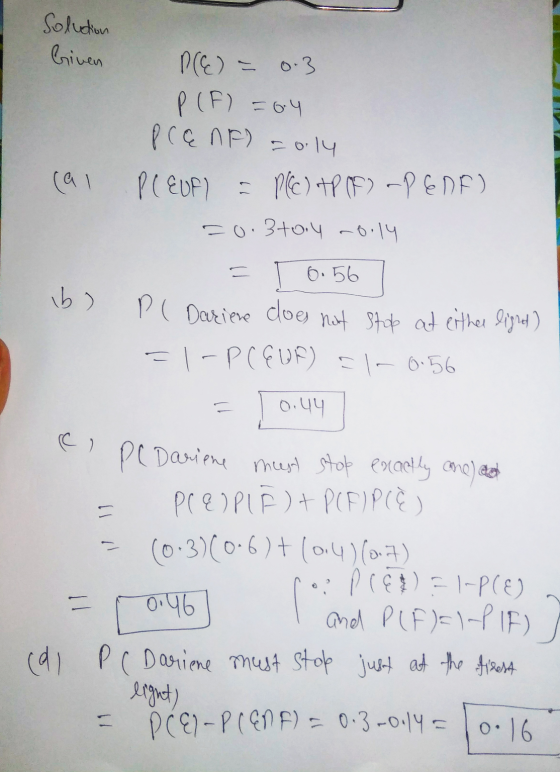 Solution
Given P(ε) = 0.3
P(F) = 04
P(ε ∩F) = 0.14
(a) P(εUF) = P(ε)+P(F) -P ε∩F)
= 0.3+0.4 -0.14
= 0.56
(b) P( Dariene does not stop at either light)
= 1 - P(εUF) = 1- 0.56
= 0.44
(c) P(Dariene must stop exactly one)
= P(ε)P(F̄)+ P(F)P(ε̄)
= (0.3)(0.6)+(0.4)(0.7)
= 0.46 [∵ P(ε̄) = 1-P(ε)
and P(F)=1-P(F)]
(d) P( Dariene must stop just at the first
light)
= P(ε)-P(ε∩F) = 0.3-0.14 = 0.16